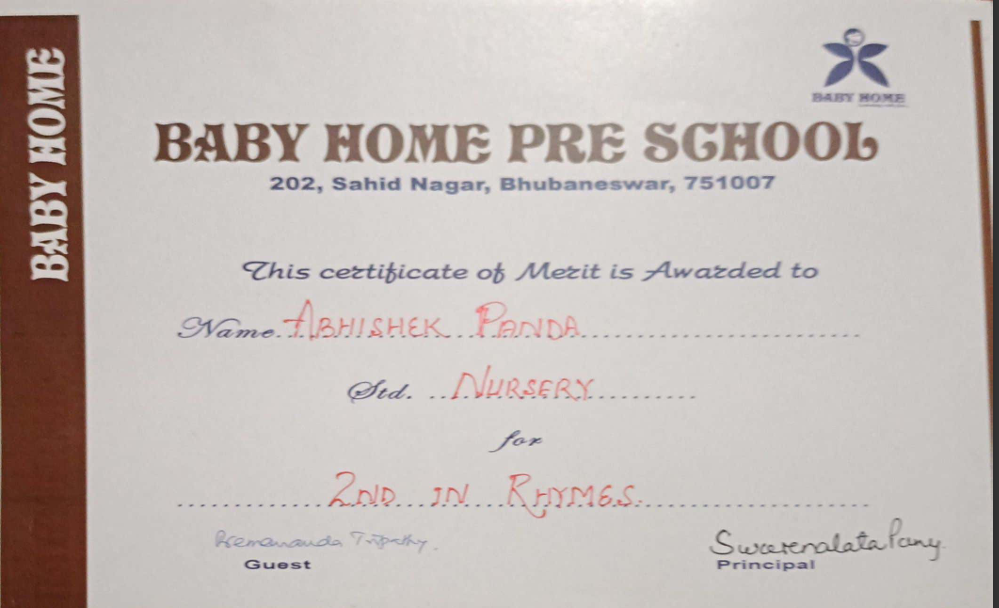 BABY HOME
BABY HOME
BABY HOME PRE SCHOOL
202, Sahid Nagar, Bhubaneswar, 751007
This certificate of Merit is Awarded to
Name. ABHISHEK PANDA
Std. NURSERY
for
2ND IN RHYMES.
Premananda Tripathy. Swarenalata Pany.
Guest Principal